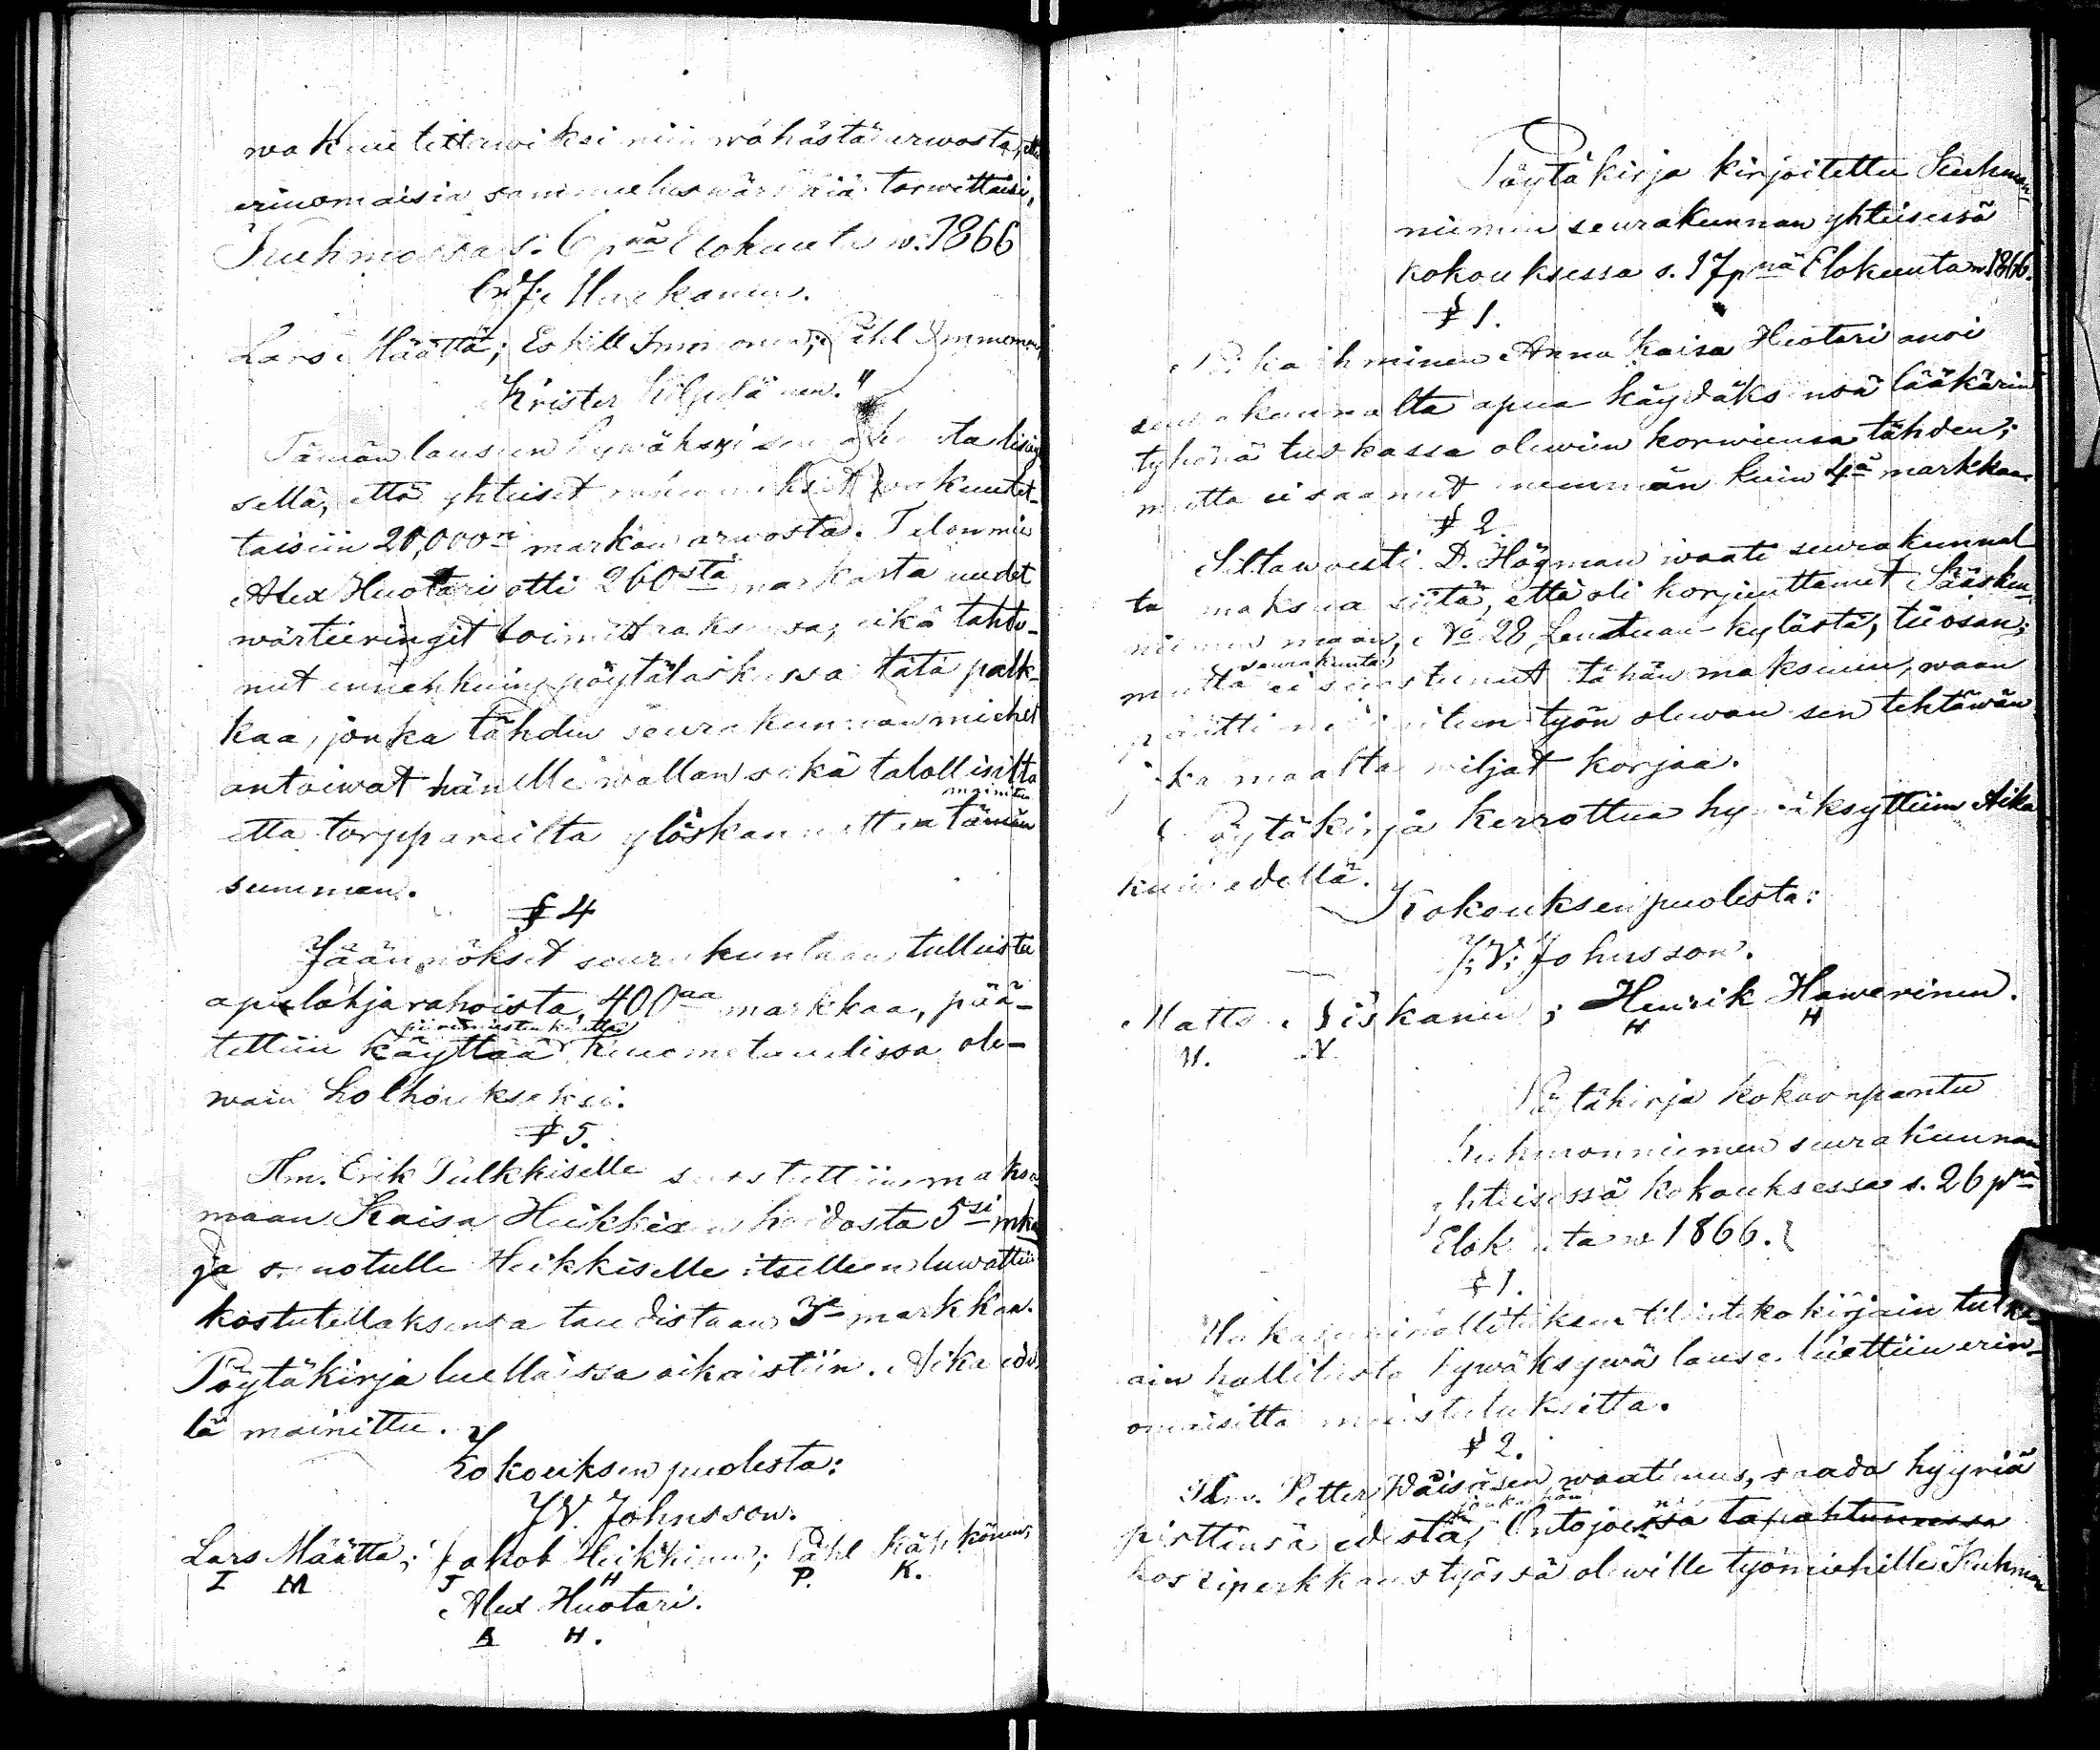 wakuutettawiksi niin wähästä arwosta, että
erinomaisia sammuteluswärkkiä tarwittaisi,
Kuhmossa s. 6 p:nä Elokuuta w. 1866
C. J. Murkanen.
Lars Määttä; Eskill Immonen; Påhl Immonen,
Krister Kilpeläinen."
Tämän lauseen hywäksyi seurakunta lisäyk-
sellä, että yhteiset rakennukset wakuutet-
taisiin 20,000:n markan arwosta. Talonmies
Alex Huotari otti 260:stä markasta uudet
wärtieringit toimittaaksensa, eikä tahto-
nut ennenkuin pöytälaskussa tätä palk-
kaa, jonka tähden seurakunnan miehet
antoiwat hänelle wallan sekä talollisilta
mainitun
että torppareilta ylöskannettaa tämän
summan.
§ 4
Jäännökset seurakuntaan tulleista
apulahjarahoista, 400:aa markkaa, pää-
piirimiesten kautta
tettiin käyttää kuumetaudissa ole-
wain holhoukseksi.
§ 5.
Tlm. Erik Pulkkiselle suostuttiin maksa-
maan Kaisa Heikkisen hoidosta 5:si mka
ja s. notulle Heikkiselle itselleen luwattiin
kostutellaksensa taudistaan 3:e markkaa.
Pöytäkirja luettaissa oikaistiin. Aika edel-
lä mainittu.
Kokouksen puolesta:
J V. Johnsson.
Lars Määttä; Jakob Heikkinen; Påhl Kähkönen;
I M J H P. K.
Alex Huotari.
A H.
Pöytäkirja kirjoitettu Kuhmon-
niemen seurakunnan yhteisessä
kokouksessa s. 17 p:nä Elokuuta w 1866.
§ 1.
Piikaihminen Anna Kaisa Huotari anoi
seurakunnalta apua käydäksensä lääkärin
tykönä tuskassa olewien korwiensa tähden;
mutta ei saanut enemmän kuin 4:ä markkaa
§ 2
Siltawouti D. Högman waati seurakunnal-
ta maksua siitä, että oli korjuuttanut Sääsken-
niemen maan, No 28 Lentuan-kylästä, tieosan;
seurakunta
mutta ei suostunut tähän maksuun, waan
päätti mainitun työn olewan sen tehtäwän
joka maalta wiljat korjaa.
Pöytäkirja kerrottua hywäksyttiin Aika
kuin edellä.
Kokouksen puolesta:
J. V. Johnsson.
Matts Niskanen; Henrik Hawerinen.
M. N. H H
Pöytäkirja kokoonpantu
Kuhmonniemen seurakunnan
yhteisessä kokouksessa s. 26 p:nä
Elokuuta w 1866.
§ 1.
Makasiinihallituksen tilintekokirjain tutki-
ain hallitusta hywäksywä lause luettiin erin-
omaisitta muistutuksitta.
§ 2.
Tlm. Petter Wäisäsen waatimus, saada hyyriä
jonka hän
pirttinsä edestä, Ontojoessa tapahtuneessa
koskiperkkaustyössä olewille työmiehille Kuhmon